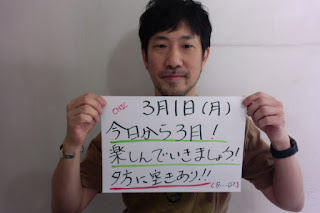 3月1日(月)
今日から3月!
楽しんでいきましょう!
夕方に空きあり!!